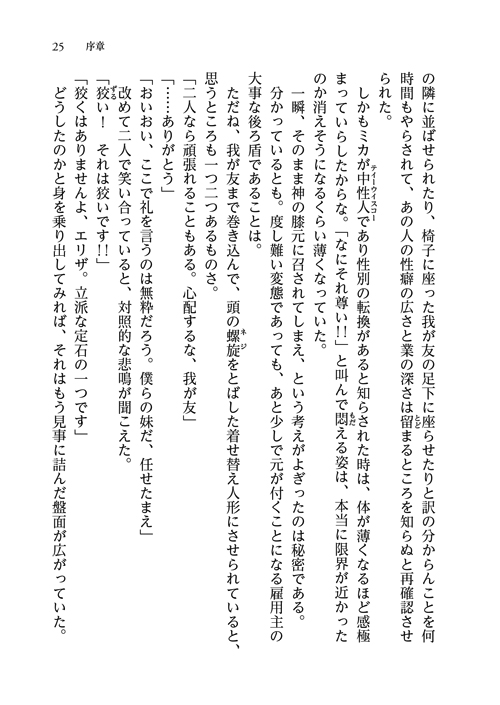 25　序章
の隣に並ばせられたり、椅子に座った我が友の足下に座らせたりと訳の分からんことを何
時間もやらされて、あの人の性癖の広さと業の深さは留まるところを知らぬと再確認させ
られた。
　しかもミカが中性人であり性別の転換があると知らされた時は、体が薄くなるほど感極
まっていらしたからな。「なにそれ尊い!!」と叫んで悶える姿は、本当に限界が近かった
のか消えそうになるくらい薄くなっていた。
　一瞬、そのまま神の膝元に召されてしまえ、という考えがよぎったのは秘密である。
　分かっているとも。度し難い変態であっても、あと少しで元が付くことになる雇用主の
大事な後ろ盾であることは。
　ただね、我が友まで巻き込んで、頭の螺旋をとばした着せ替え人形にさせられていると、
思うところも一つ二つあるものさ。
「二人なら頑張れることもある。心配するな、我が友」
「……ありがとう」
「おいおい、ここで礼を言うのは無粋だろう。僕らの妹だ、任せたまえ」
　改めて二人で笑い合っていると、対照的な悲鳴が聞こえた。
「狡い！　それは狡いです!!」
「狡くはありませんよ、エリザ。立派な定石の一つです」
　どうしたのかと身を乗り出してみれば、それはもう見事に詰んだ盤面が広がっていた。